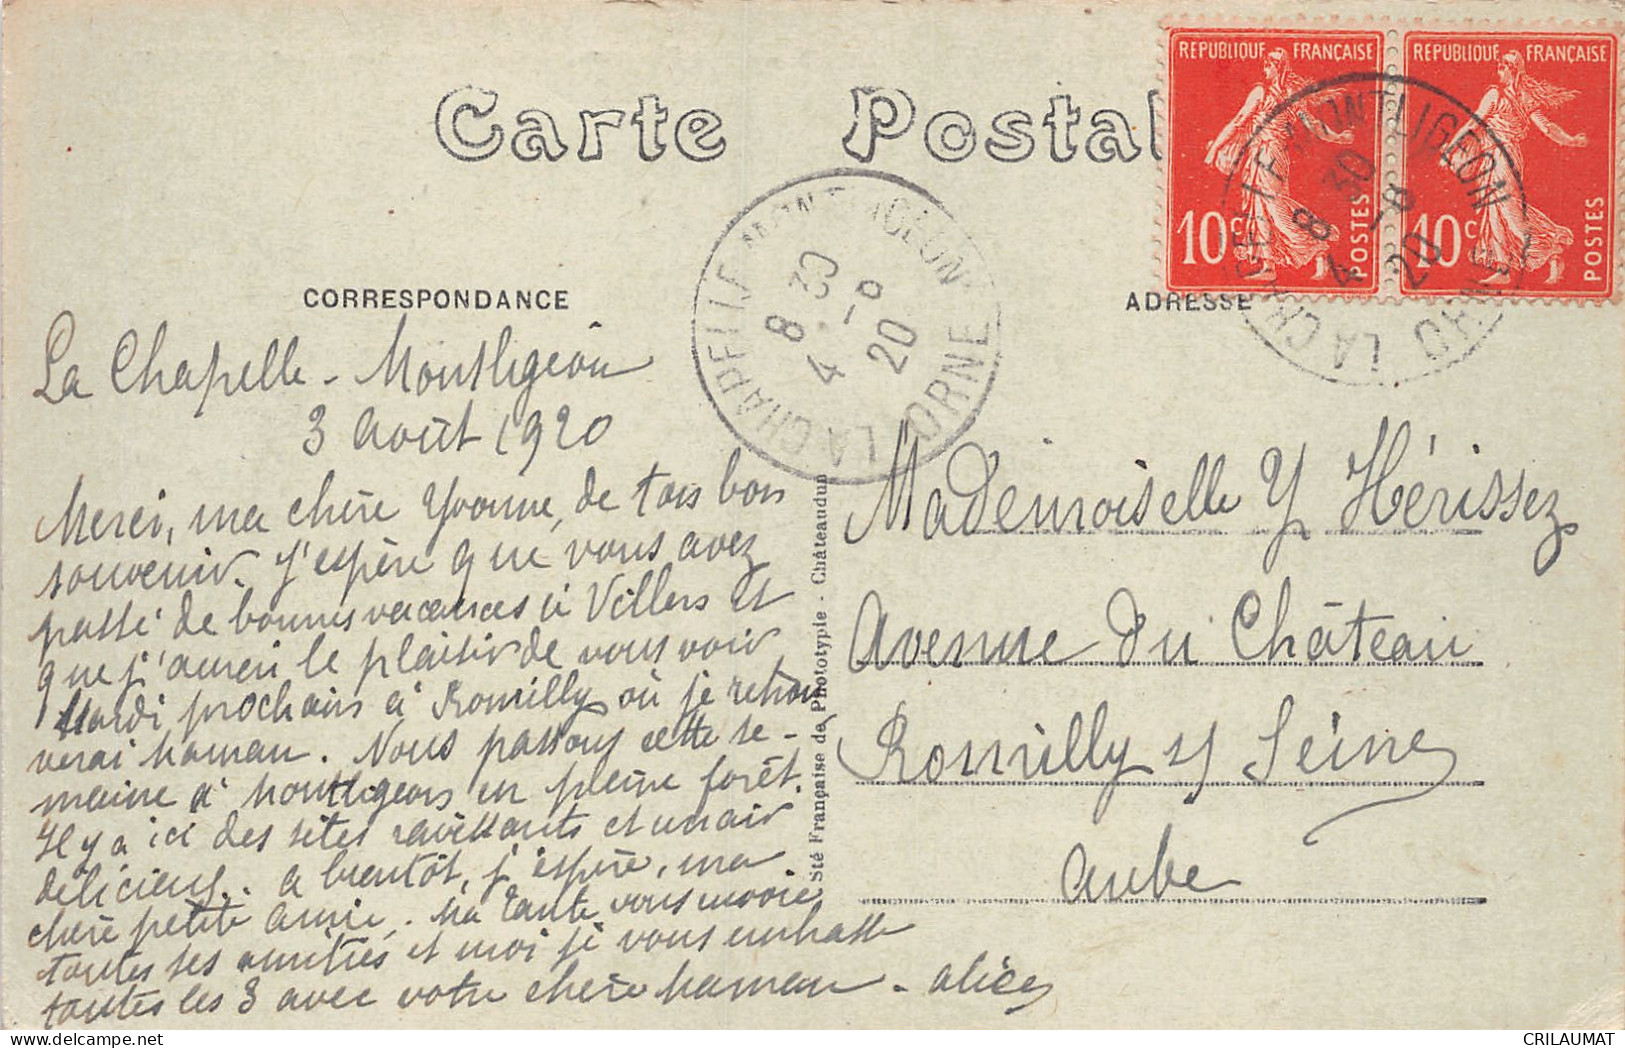 Carte Postal
REPUBLIQUE FRANÇAISE
10 c
POSTES
REPUBLIQUE FRANÇAISE
10 c
POSTES
LA CHAPELLE MONTLIGEON
ORNE
8 30
4 -8
20
LA CHAPELLE MONTLIGEON
ORNE
8 30
4 -8
20
CORRESPONDANCE
ADRESSE
La Chapelle - Montligeon
3 Août 1920
Merci, ma chère Yvonne, de tous bon
souvenir. J'espère que vous avez
passé de bonnes vacances à Villers et
que j'aurai le plaisir de vous voir
Mardi prochain à Romilly où je retrou
verai Maman. Nous passons cette se-
maine à Montligeon en pleine forêt.
Il y a ici des sites ravissants et un air
délicieux. A bientôt, j'espère, ma
chère petite amie. Ma tante vous envoie
toutes ses amitiés et moi je vous embrasse
toutes les 3 avec votre chère Maman - Alice
Sté Française de Phototypie - Châteaudun
Mademoiselle Y Hérissez
Avenue du Château
Romilly s/ Seine
Aube
CRILAUMAT